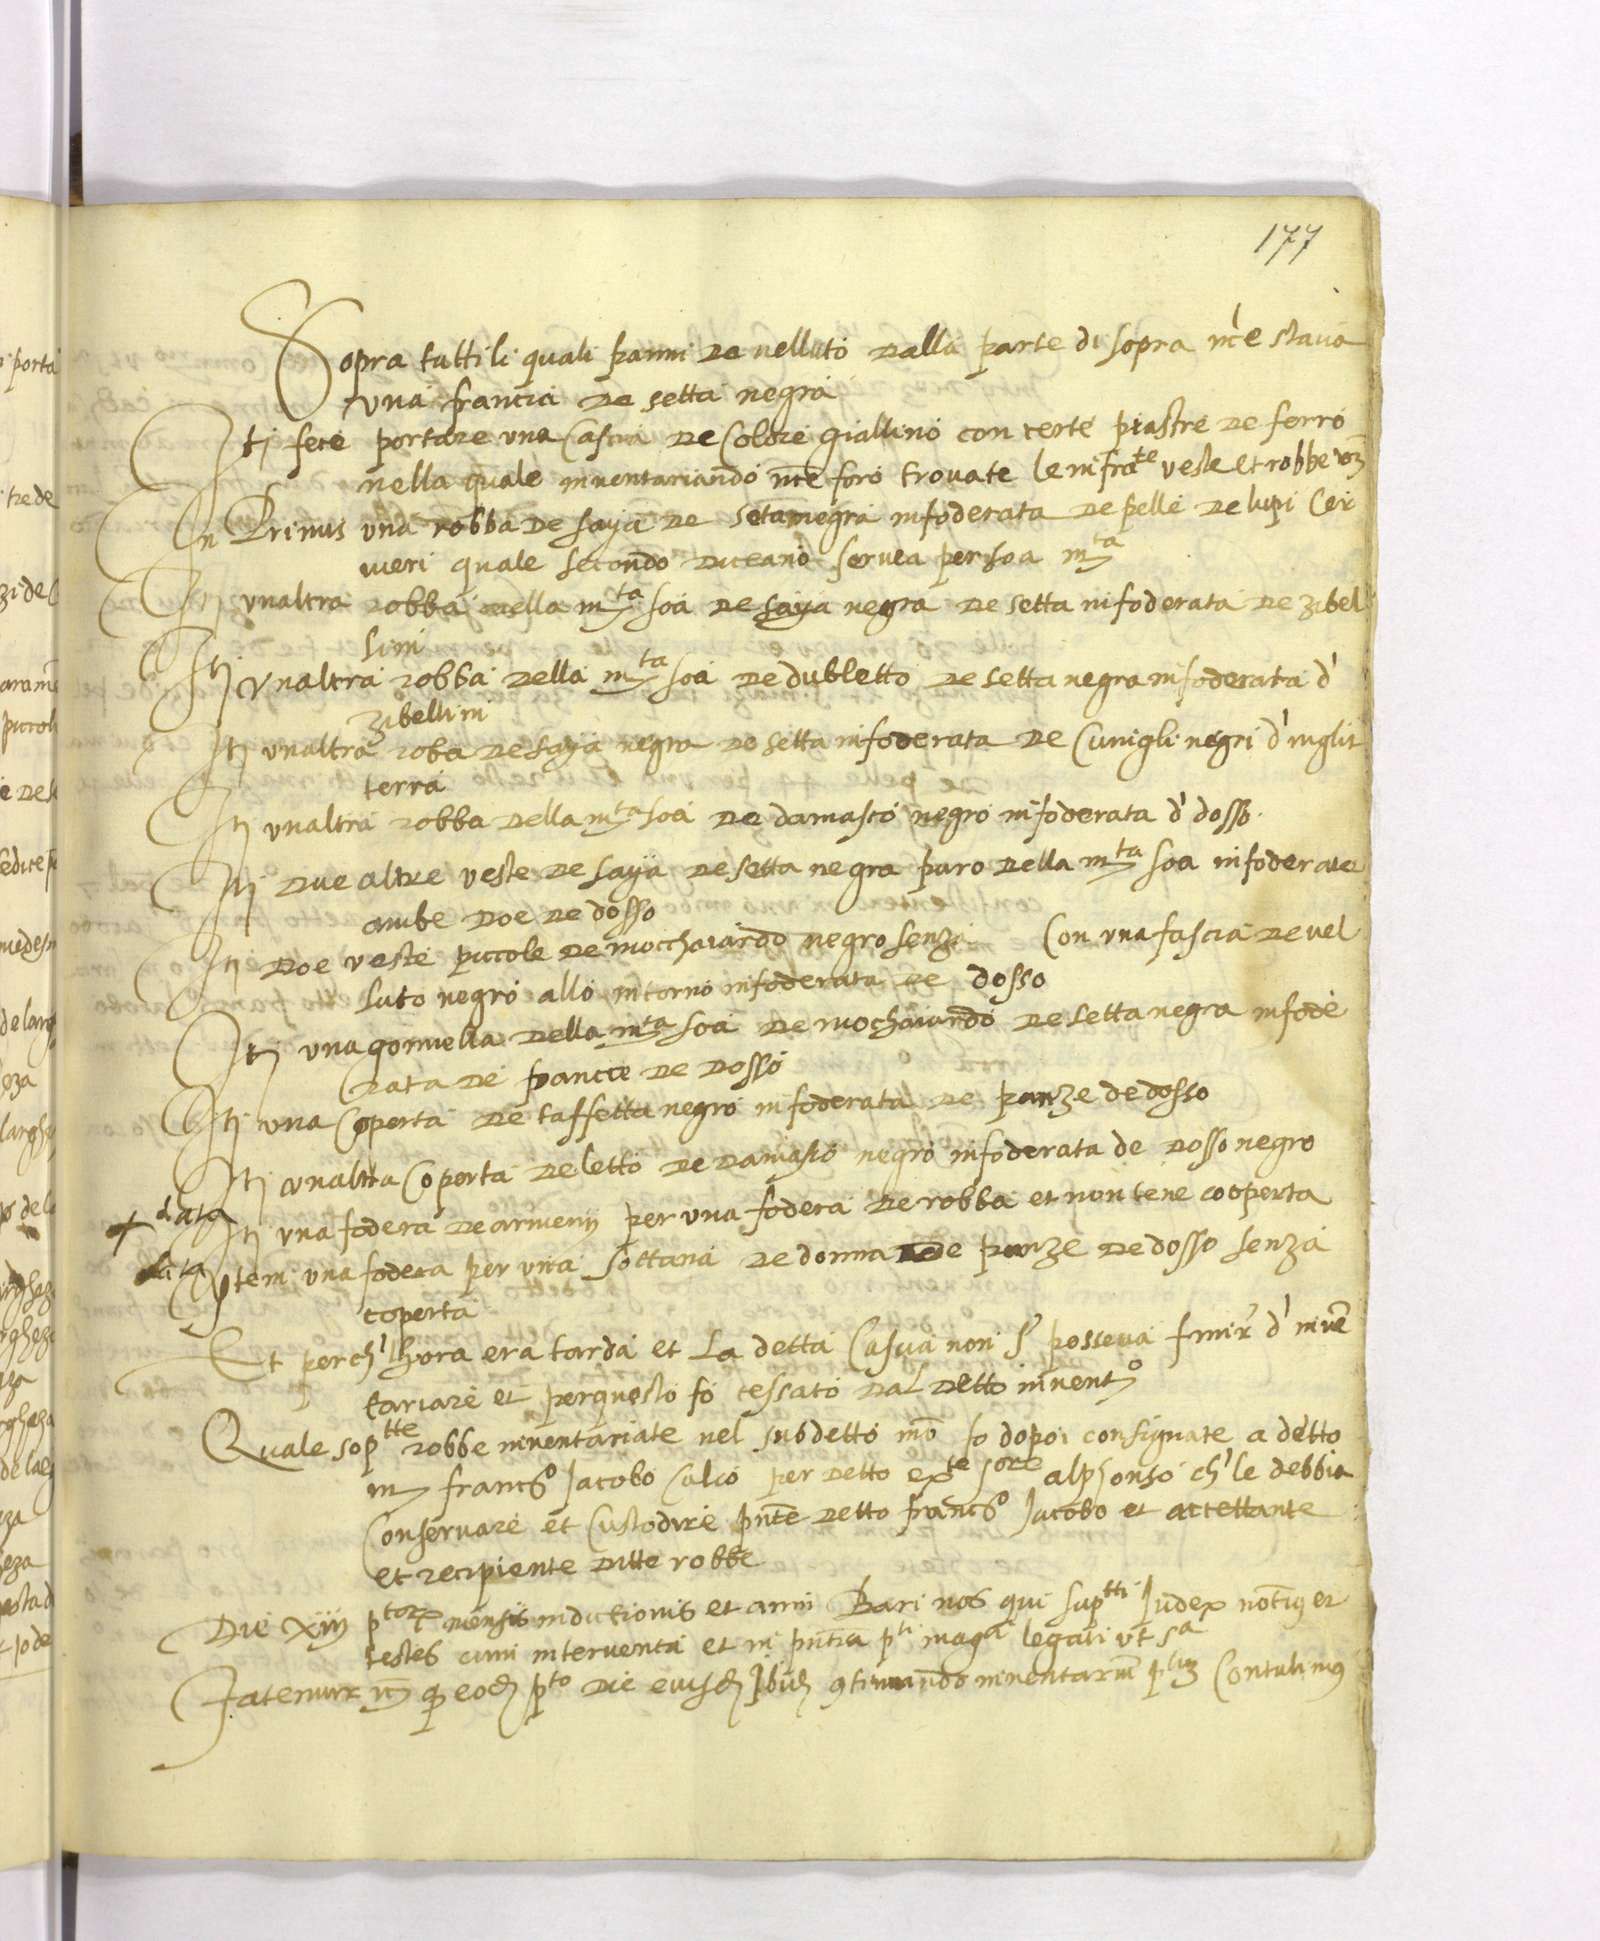 177
Sopra tutti li quali panni de velluto dalla parte di sopra nc̄e stava
una francia de setta negra
Itj fece portare una Cascia de Colore giallino con certe piastre de ferro
nella quale inventariando nc̄e foro trovate le infrate veste et robbe
In Primus una robba de saya de seta negra infoderata de pelle de lupi Cer
vieri quale secondo diceano servea per soa mta
Itj unaltra robba della mta soa de saya negra de setta infoderata de zibel
lini
Itj unaltra robba della mta soa de dubletto de setta negra infoderata d'
zibellini
Itj unaltra roba de saya negra de setta infoderata de Cunigli negri d'inglit
terra
Itj unaltra robba della mta soa de damasco negro infoderata d' dosso
Itj due altre veste de saya de setta negra puro della mta soa infoderate
ambe doe de dosso
Itj doe veste piccole de mocchaiardo negro senza Con una fascia de vel
luto negro allo intorno infoderata de dosso
Itj una gonnella della mta soa de mochaiardo de setta negra infode
rata de francie de dosso
Itj una Coperta de taffetta negro infoderata de panze de dosso
Itj unaltra Coperta de letto de damasco negro infoderata de dosso negro
+ data Itj una fodera de armenij per una fodera de robba et non tene cooperta
data Item una fodera per una sottana de donna de panze de dosso senza
coperta
Et perch' lhora era tarda et La detta Casua non se posseva finir' d' inve
tariare et per questo fo cessato dal detto inventro
Quale soptte robbe inventariate nel subdetto mō fo dopoi consignate a detto
m francō Jacobo Calco per detto exte sore alphonso ch' le debbia
Conservare et Custodire pn̄te detto francō Jacobo et accettante
et recipiente ditte robbe
Die xiiij ptorum mensis indictionis et anni Bari nos qui suptti Judex not et
testes cum interventu et in pn̄tia pti magci legati ut sa
Fatemur q eod pto die eiusd continuando inventarium Contulimus